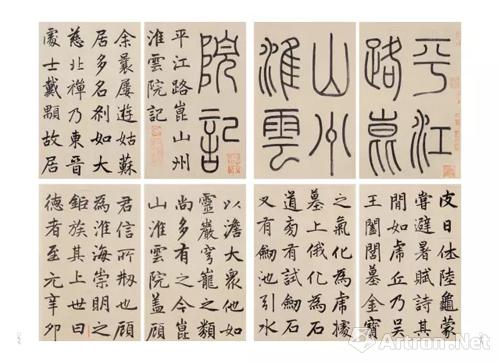 平江
路崑
山州
淮雲
院記
平江路崑山州
淮雲院記
余曩屢遊姑蘇
居多名刹如大
慈北禪乃東晉
處士戴顒故居
皮日休陸龜蒙
嘗避暑賦詩其
間如虎丘乃吳
王闔閭墓金寶
之氣化為虎據
墓上俄化為石
道旁有試劒石
又有劒池引水
以澹大衆他如
靈巖穹窿之類
尚多有之今崑
山淮雲院蓋顧
君信所剏也顧
為淮海崇明之
鉅族其上世曰
德者至元辛卯
Artron.Net